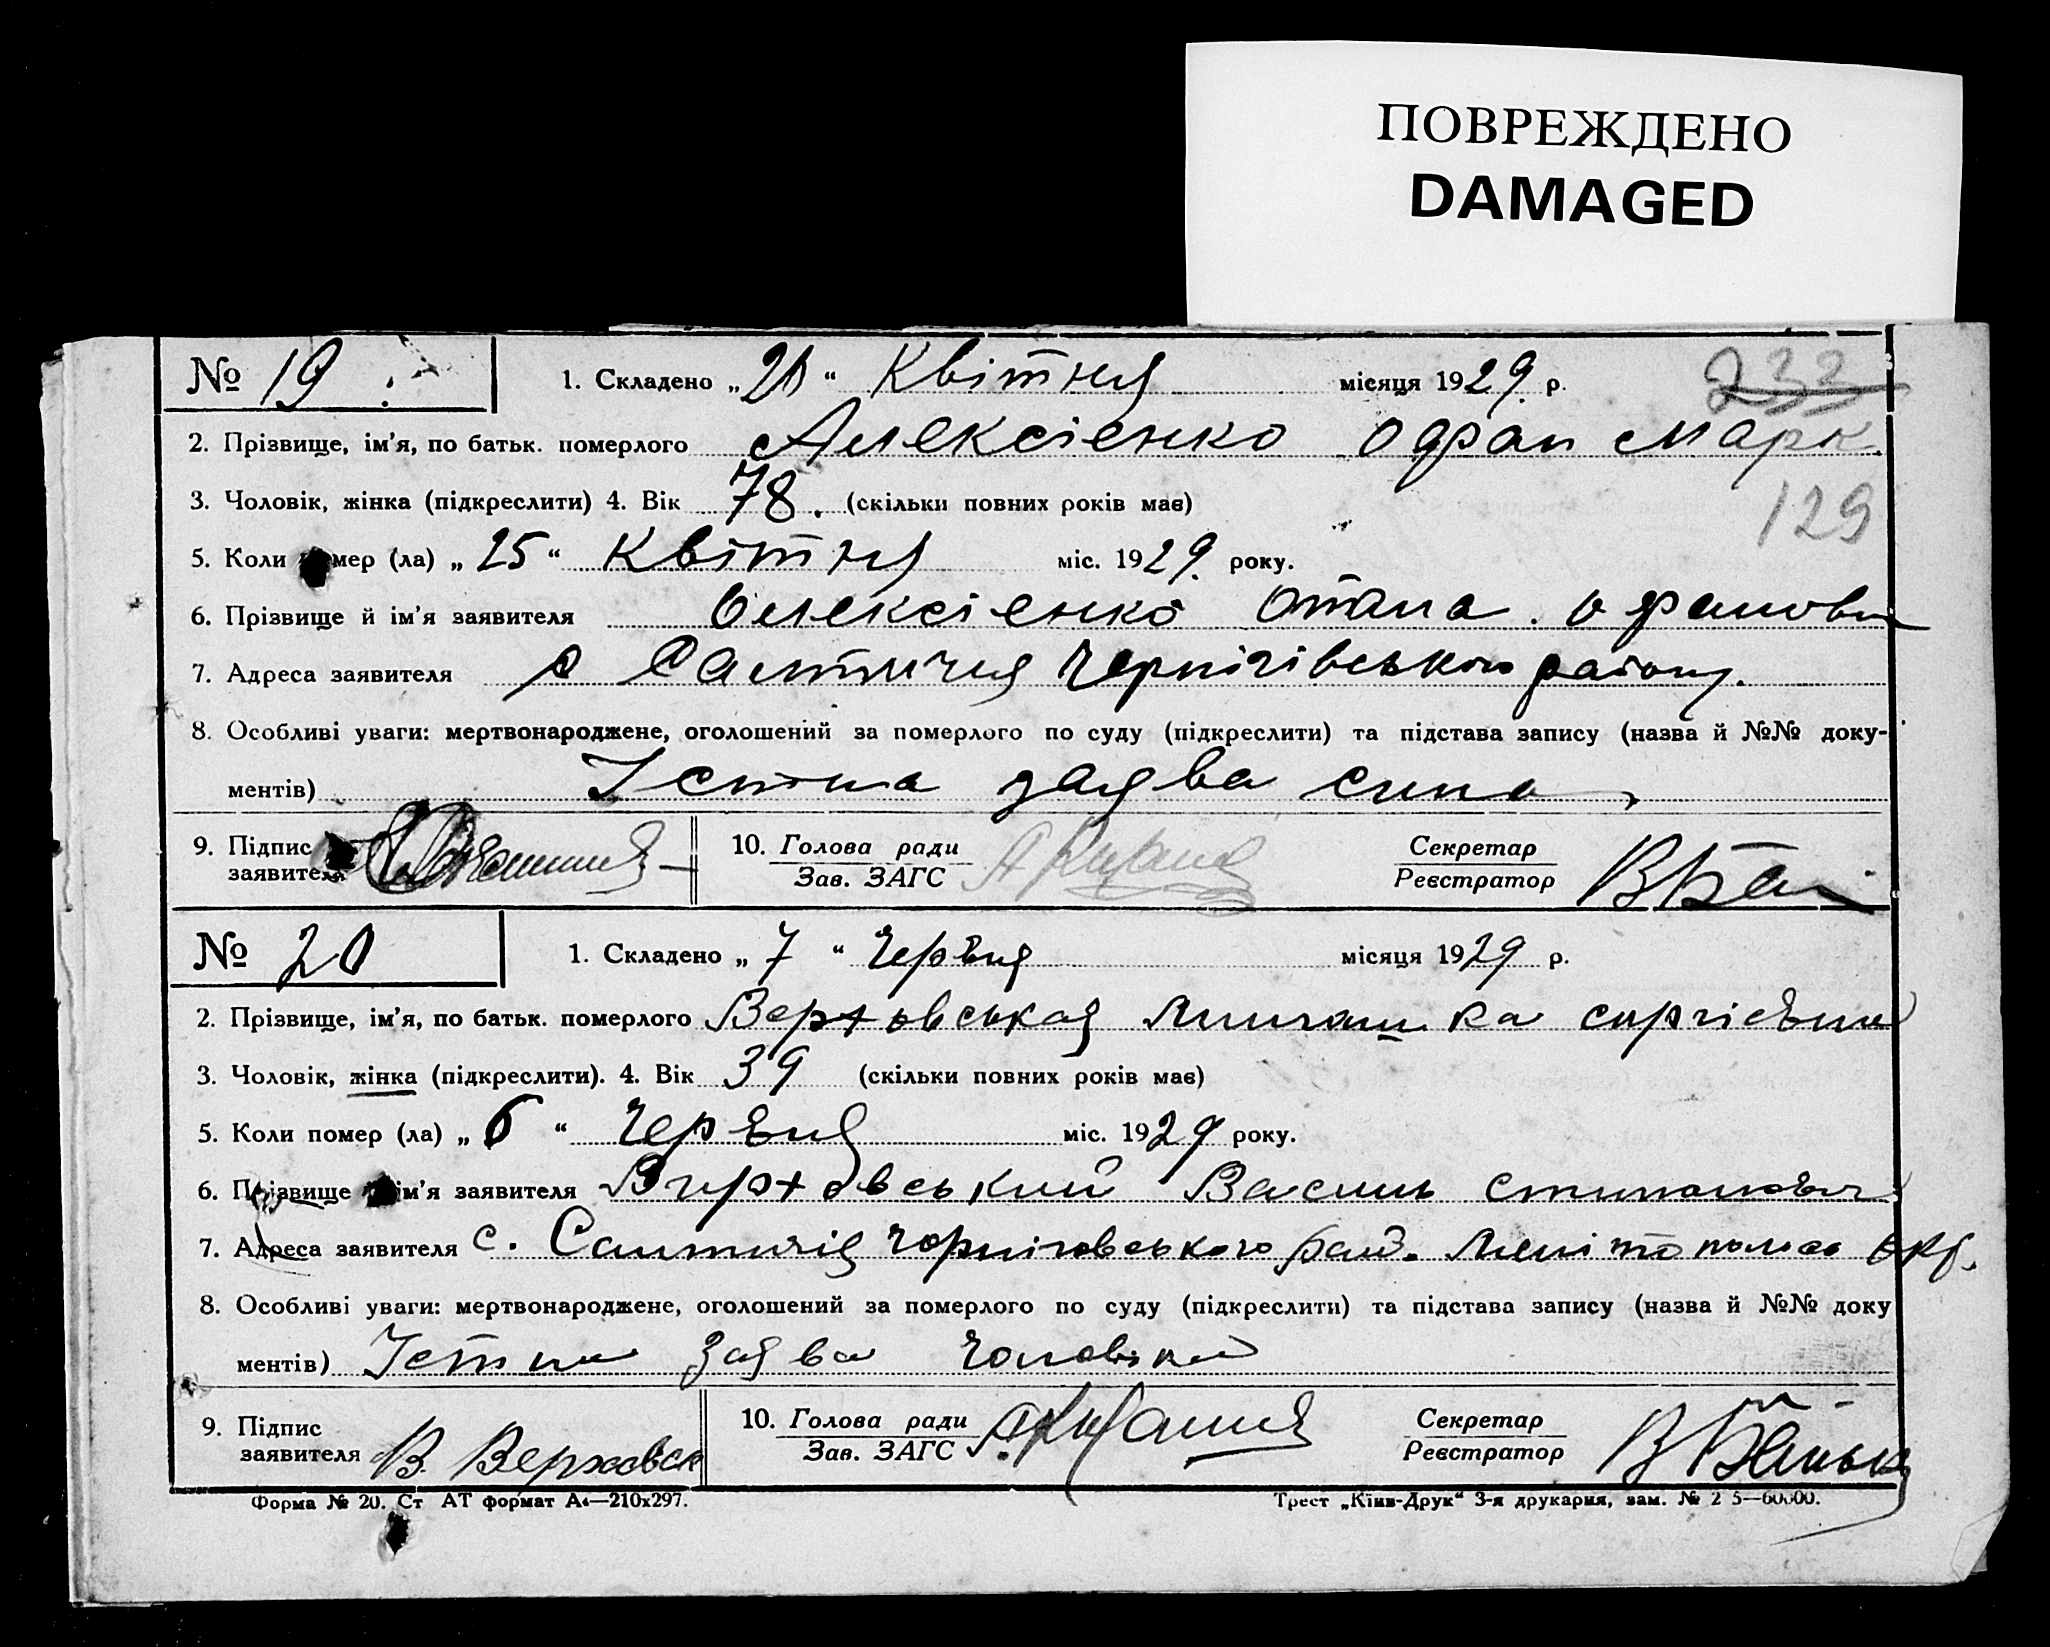 ПОВРЕЖДЕНО
DAMAGED
№ 19. 1. Складено „ “ Квітня місяця 1929. р. 232
2. Прізвище, ім'я, по батьк. померлого Алексієнко Офан Марк.
3. Чоловік, жінка (підкреслити) 4. Вік 78. (скільки повних років має)
129
5. Коли помер (ла) „ 25 “ Квітня міс. 1929. року.
6. Прізвище й ім'я заявителя Олексієнко
7. Адреса заявителя с Салтичія Чернігівського району.
8. Особливі уваги: мертвонароджене, оголошений за померлого по суду (підкреслити) та підстава запису (назва й №№ доку-
ментів) Істна заява сина
9. Підпис заявителя 10. Голова ради Секретар
Зав. ЗАГС Реєстратор
№ 20 1. Складено „ 7 “ Червня місяця 1929 р.
2. Прізвище, ім'я, по батьк. померлого Верховская
3. Чоловік, жінка (підкреслити). 4. Вік 39 (скільки повних років має)
5. Коли помер (ла) „ 6 “ Червня міс. 1929 року.
6. Прізвище й ім'я заявителя Вирховський Василь
7. Адреса заявителя с. Салтичія Чорніговського Окр.
8. Особливі уваги: мертвонароджене, оголошений за померлого по суду (підкреслити) та підстава запису (назва й №№ доку
ментів) Істна заява
9. Підпис заявителя В. Верховск 10. Голова ради Секретар
Зав. ЗАГС Реєстратор
Форма № 20. Ст АТ формат А4—210х297. Трест „Київ-Друк“ 3-я друкарня, зам. №